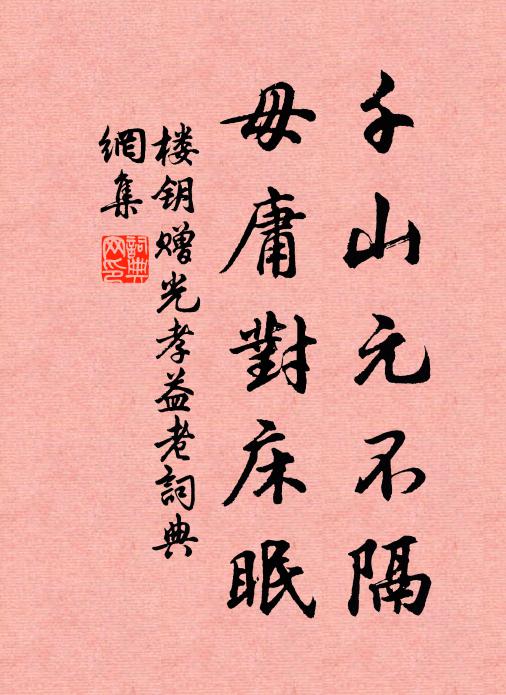 千山元不隔
毋庸對床眠
楼钥赠光孝益老詞典
網集
詞典网印